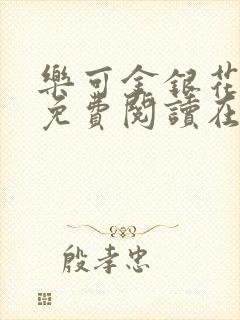 樂可金銀花
免費閱讀在
殷孝忠